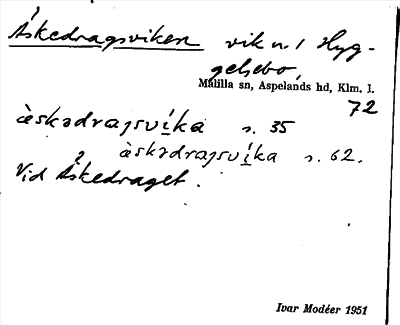 Åskedragsviken vik n.! Hyg-
gelsebo,
Målilla sn, Aspelands hd, Klm. l.
72
àskədragsvíka s. 35
àskədragsvíka s. 62.
Vid Åskedraget.
Ivar Modéer 1951